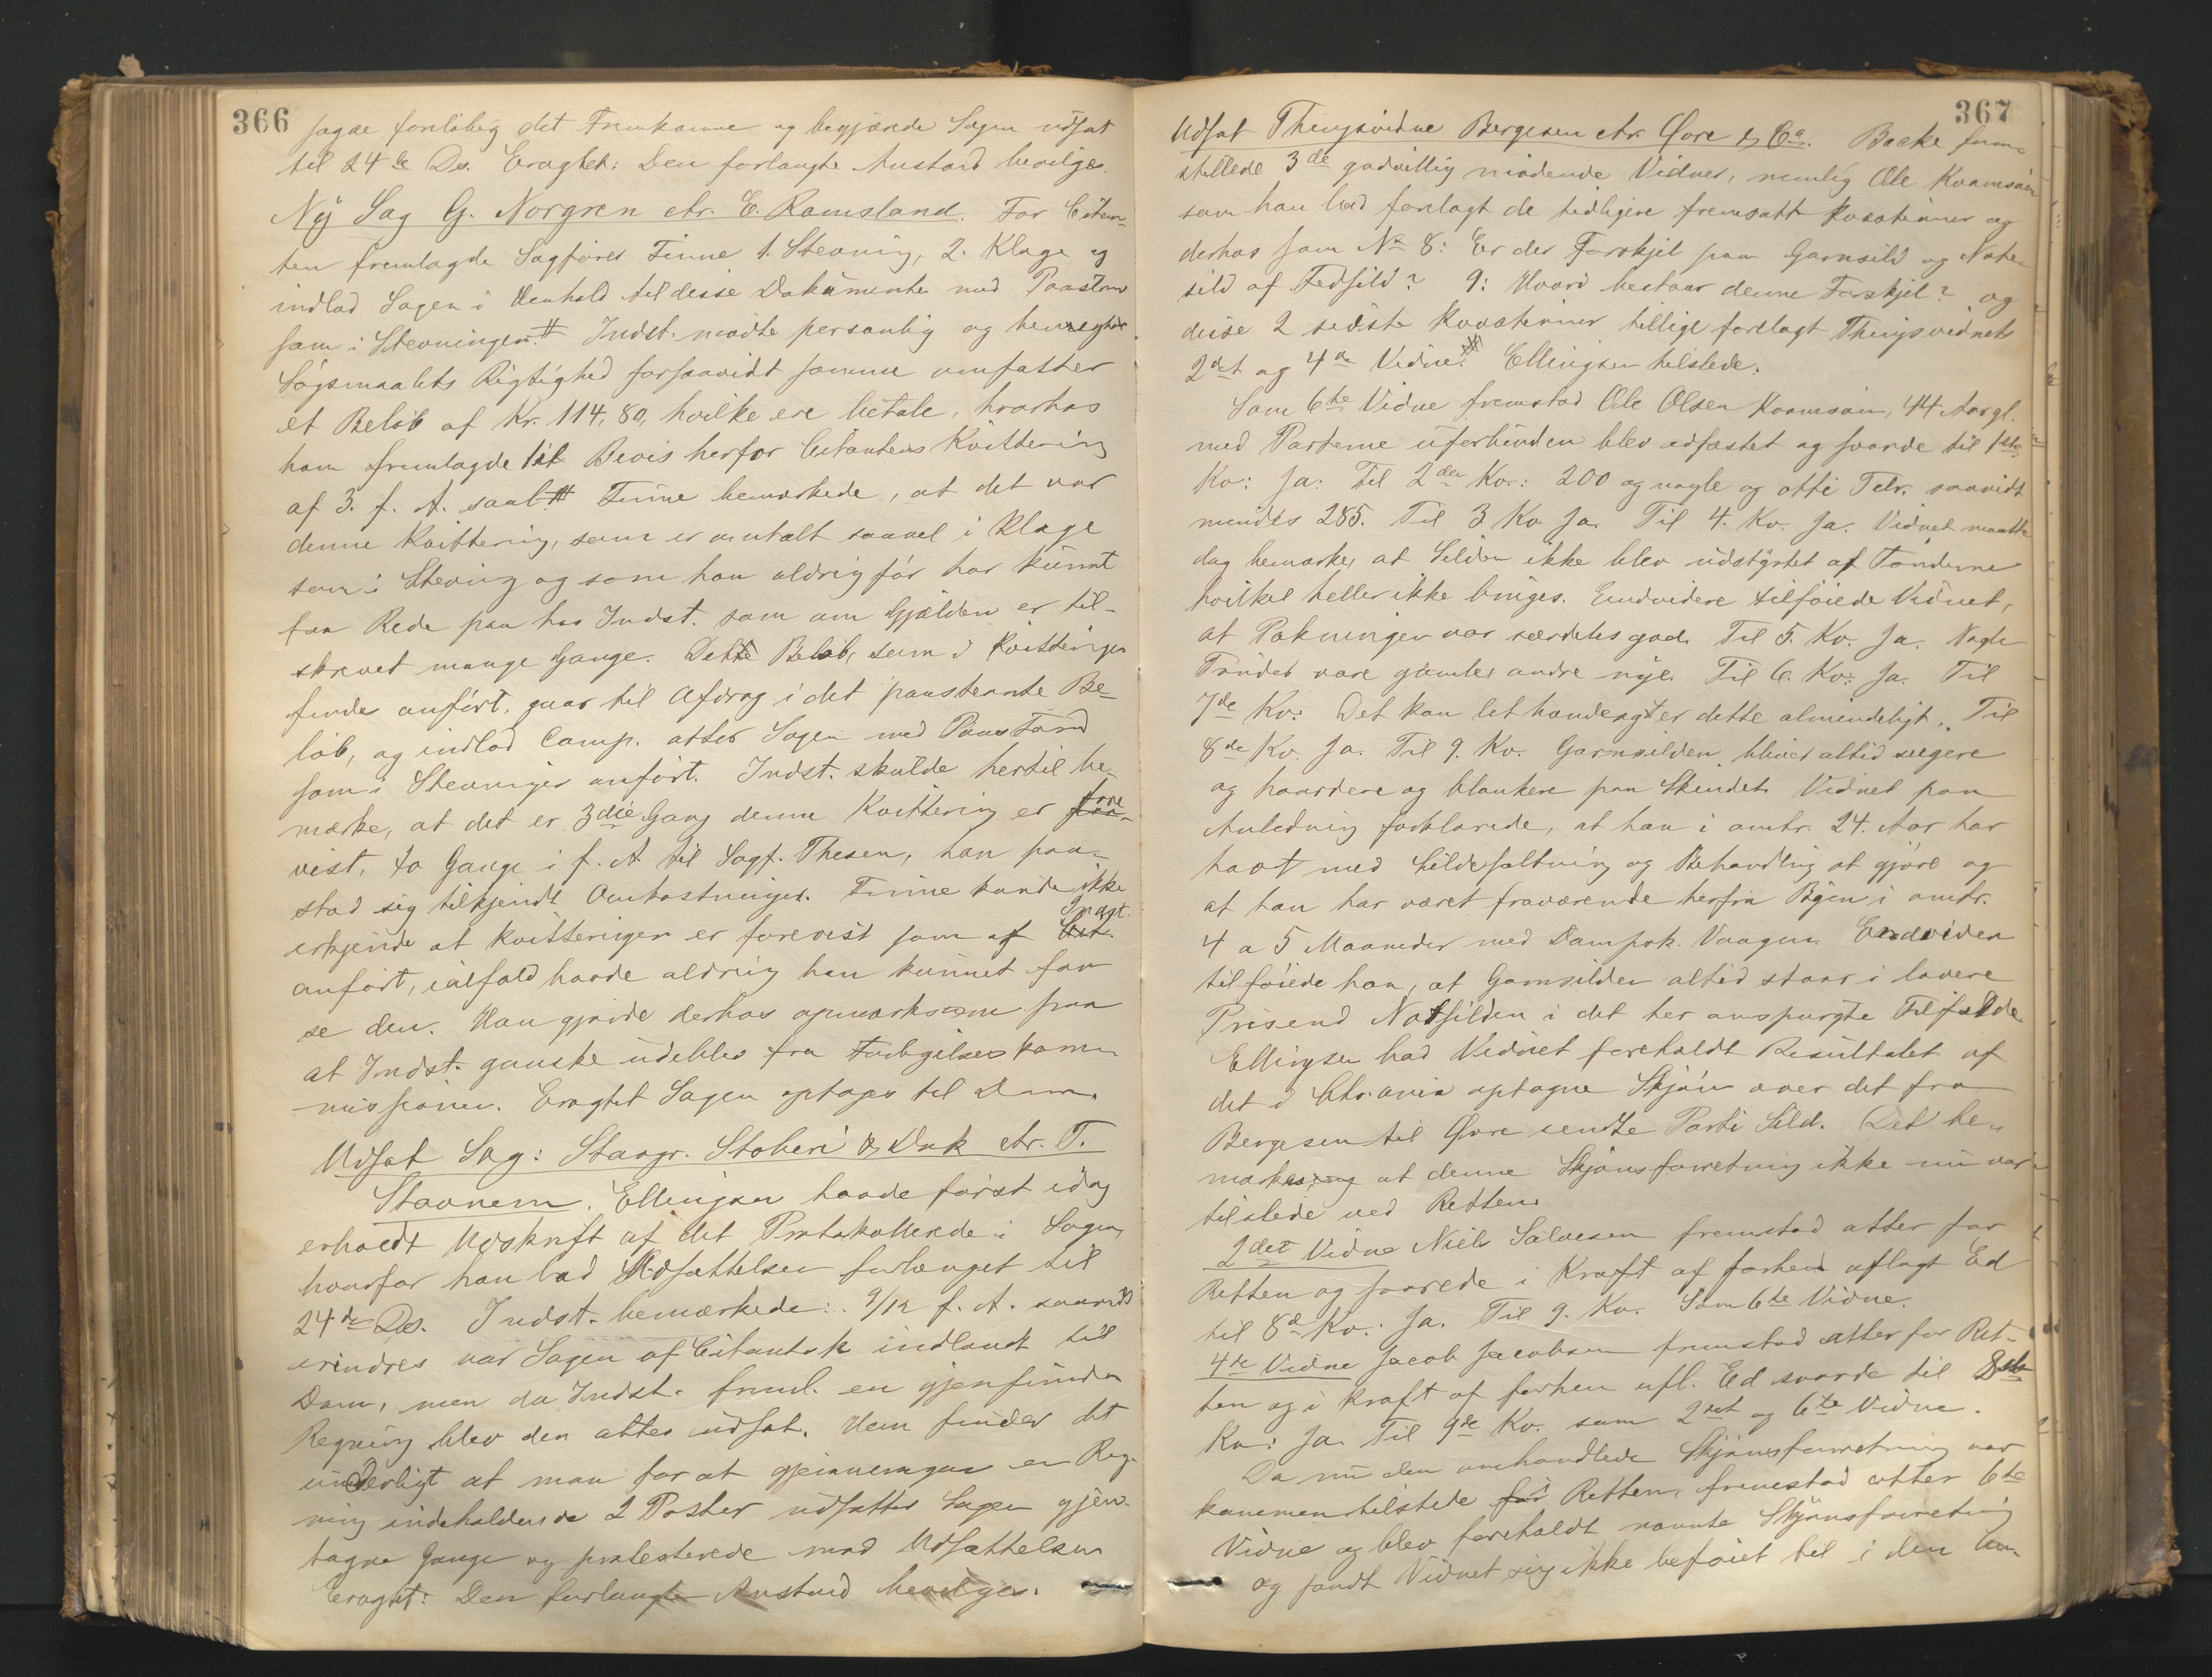 366
sagde foreløbig det Fremkomne og begjærede Sagen udsat
til 24de Ds. Eragtet: Den forlangte Anstand bevilges.
Ny Sag G. Norgren ctr. E. Ramsland. For Citan-
ten fremlagde Sagfører Finne 1. Stevning, 2. Klage og
indlod Sagen i Henhold til disse Dokumenter med Paastand
som i Stevningen # Indst. mødte personlig og benægtede
Søgsmaalets Rigtighed forsaavidt samme omfatter
et Beløb af Kr. 114,80, hvilke ere betalt, hvorhos
han fremlagde til Bevis herfor Citantens Kvittering
af 3. f. A. # Finne bemærkede, at det var
denne Kvittering, som er omtalt saavel i Klage
som i Stevning og som han aldrig før har kunnet
faa Rede paa hos Indst. som om Gjælden er til-
skrevet mange Gange. Dette Beløb, som i Kvitteringen
findes anført, gaar til Afdrag i det paastevnte Be-
løb, og indlod Comp. atter Sagen med Paastand
som i Stevningen anført. Indst. skulde hertil be-
mærke, at det er 3die Gang denne Kvittering er fore-
vist, to Gange i f. A. til Sagf. Thesen, han paa-
stod sig tilkjendt Omkostninger. Finne kunde ikke
erkjende at Kvitteringen er forevist som af Indst.
anført, ialfald havde aldrig han kunnet faa
se den. Han gjorde derhos opmærksom paa
at Indst. ganske udeblev fra Forligelseskom-
missionen. Eragtet Sagen optages til Dom.
Udsat Sag: Stavgr. Støberi & Dok ctr. T.
Stavnem. Ellingsen havde først idag
erholdt Udskrift af det Protokollerede i Sagen,
hvorfor han bad Udsættelsen forlænget til
24de Ds. Indst. bemærkede: 9/12 f. A. saavidt
erindres var Sagen af Citantsk. indladt til
Dom, men da Indst. freml. en gjenfunden
Regning blev den atter udsat. Han finder det
underligt at man for at gjennemgaa en Reg-
ning indeholdende 2 Poster udsætter Sagen gjen-
tagne Gange og protesterede mod Udsættelsen
Eragtet: Den forlangte Anstand bevilges.
367
Udsat Thingsvidne Bergesen ctr. Øvre & Co. Backe frem-
stillede 3de godvillig mødende Vidner, nemlig Ole Kvamsøen
som han bad forelagt de tidligere fremsatte Kvæstioner og
derhos som No 8: Er der Forskjel paa Garnsild og Note-
sild af Fedsild? 9: Hvori bestaar denne Forskjel? og
disse 2 sidste Kvæstioner tillige forelagt Thingsvidnets
2det og 4de Vidne. # Ellingsen tilstede.
Som 6te Vidne fremstod Ole Olsen Kvamsøen, 44 Aar gl.
med Parterne uforbunden blev edfæstet og svarede til 1ste
Kv: Ja. Til 2den Kv.: 200 og nogle og otti Tdr. saavidt
mindes 285. Til 3 Kv. Ja. Til 4. Kv. Ja. Vidnet maatte
dog bemærke, at Silden ikke blev udstyrtet af Tønderne
hvilket heller ikke bruges. Endvidere tilføiede Vidnet,
at Pakningen var særdeles god. Til 5. Kv. Ja. Nogle
Tønder vare gamle, andre nye. Til 6. Kv: Ja. Til
7de Kv: Det kan let hænde, og er dette almindeligt. Til
8de Kv. Ja. Til 9. Kv. Garnsilden bliver altid seigere
og haardere og blankere paa Skindet. Vidnet paa
Anledning forklarede, at han i omtr. 24. Aar har
havt med Sildesaltning og Behandling at gjøre og
at han har været fraværende herfra Byen i omtr.
4 a 5 Maaneder med Dampsk. Vaagen. Endvidere
tilføiede han, at Garnsilden altid staar i lavere
Pris end Notsilden i det her omspurgte Tilfælde.
Ellingsen bad Vidnet foreholdt Resultatet af
det i Chr.ania optagne Skjøn over det fra
Bergesen til Øvre sendte Parti Sild. Det be-
mærkes at denne Skjønsforretning ikke nu var
tilstede ved Retten.
2det Vidne Niels Salvesen fremstod atter for
Retten og svarede i Kraft af forhen aflagt Ed
til 8de Kv.: Ja. Til 9. Kv. Som 6te Vidne.
4de Vidne Jacob Jacobsen fremstod atter for Ret-
ten og i Kraft af forhen afl. Ed svarede til 8de
Kv.: Ja. Til 9de Kv. som 2det og 6te Vidne.
Da nu den omhandlede Skjønsforretning var
kommen tilstede for Retten, fremstod atter 6te
Vidne og blev foreholdt nævnte Skjønsforretning
og fandt Vidnet sig ikke beføiet til i den An-